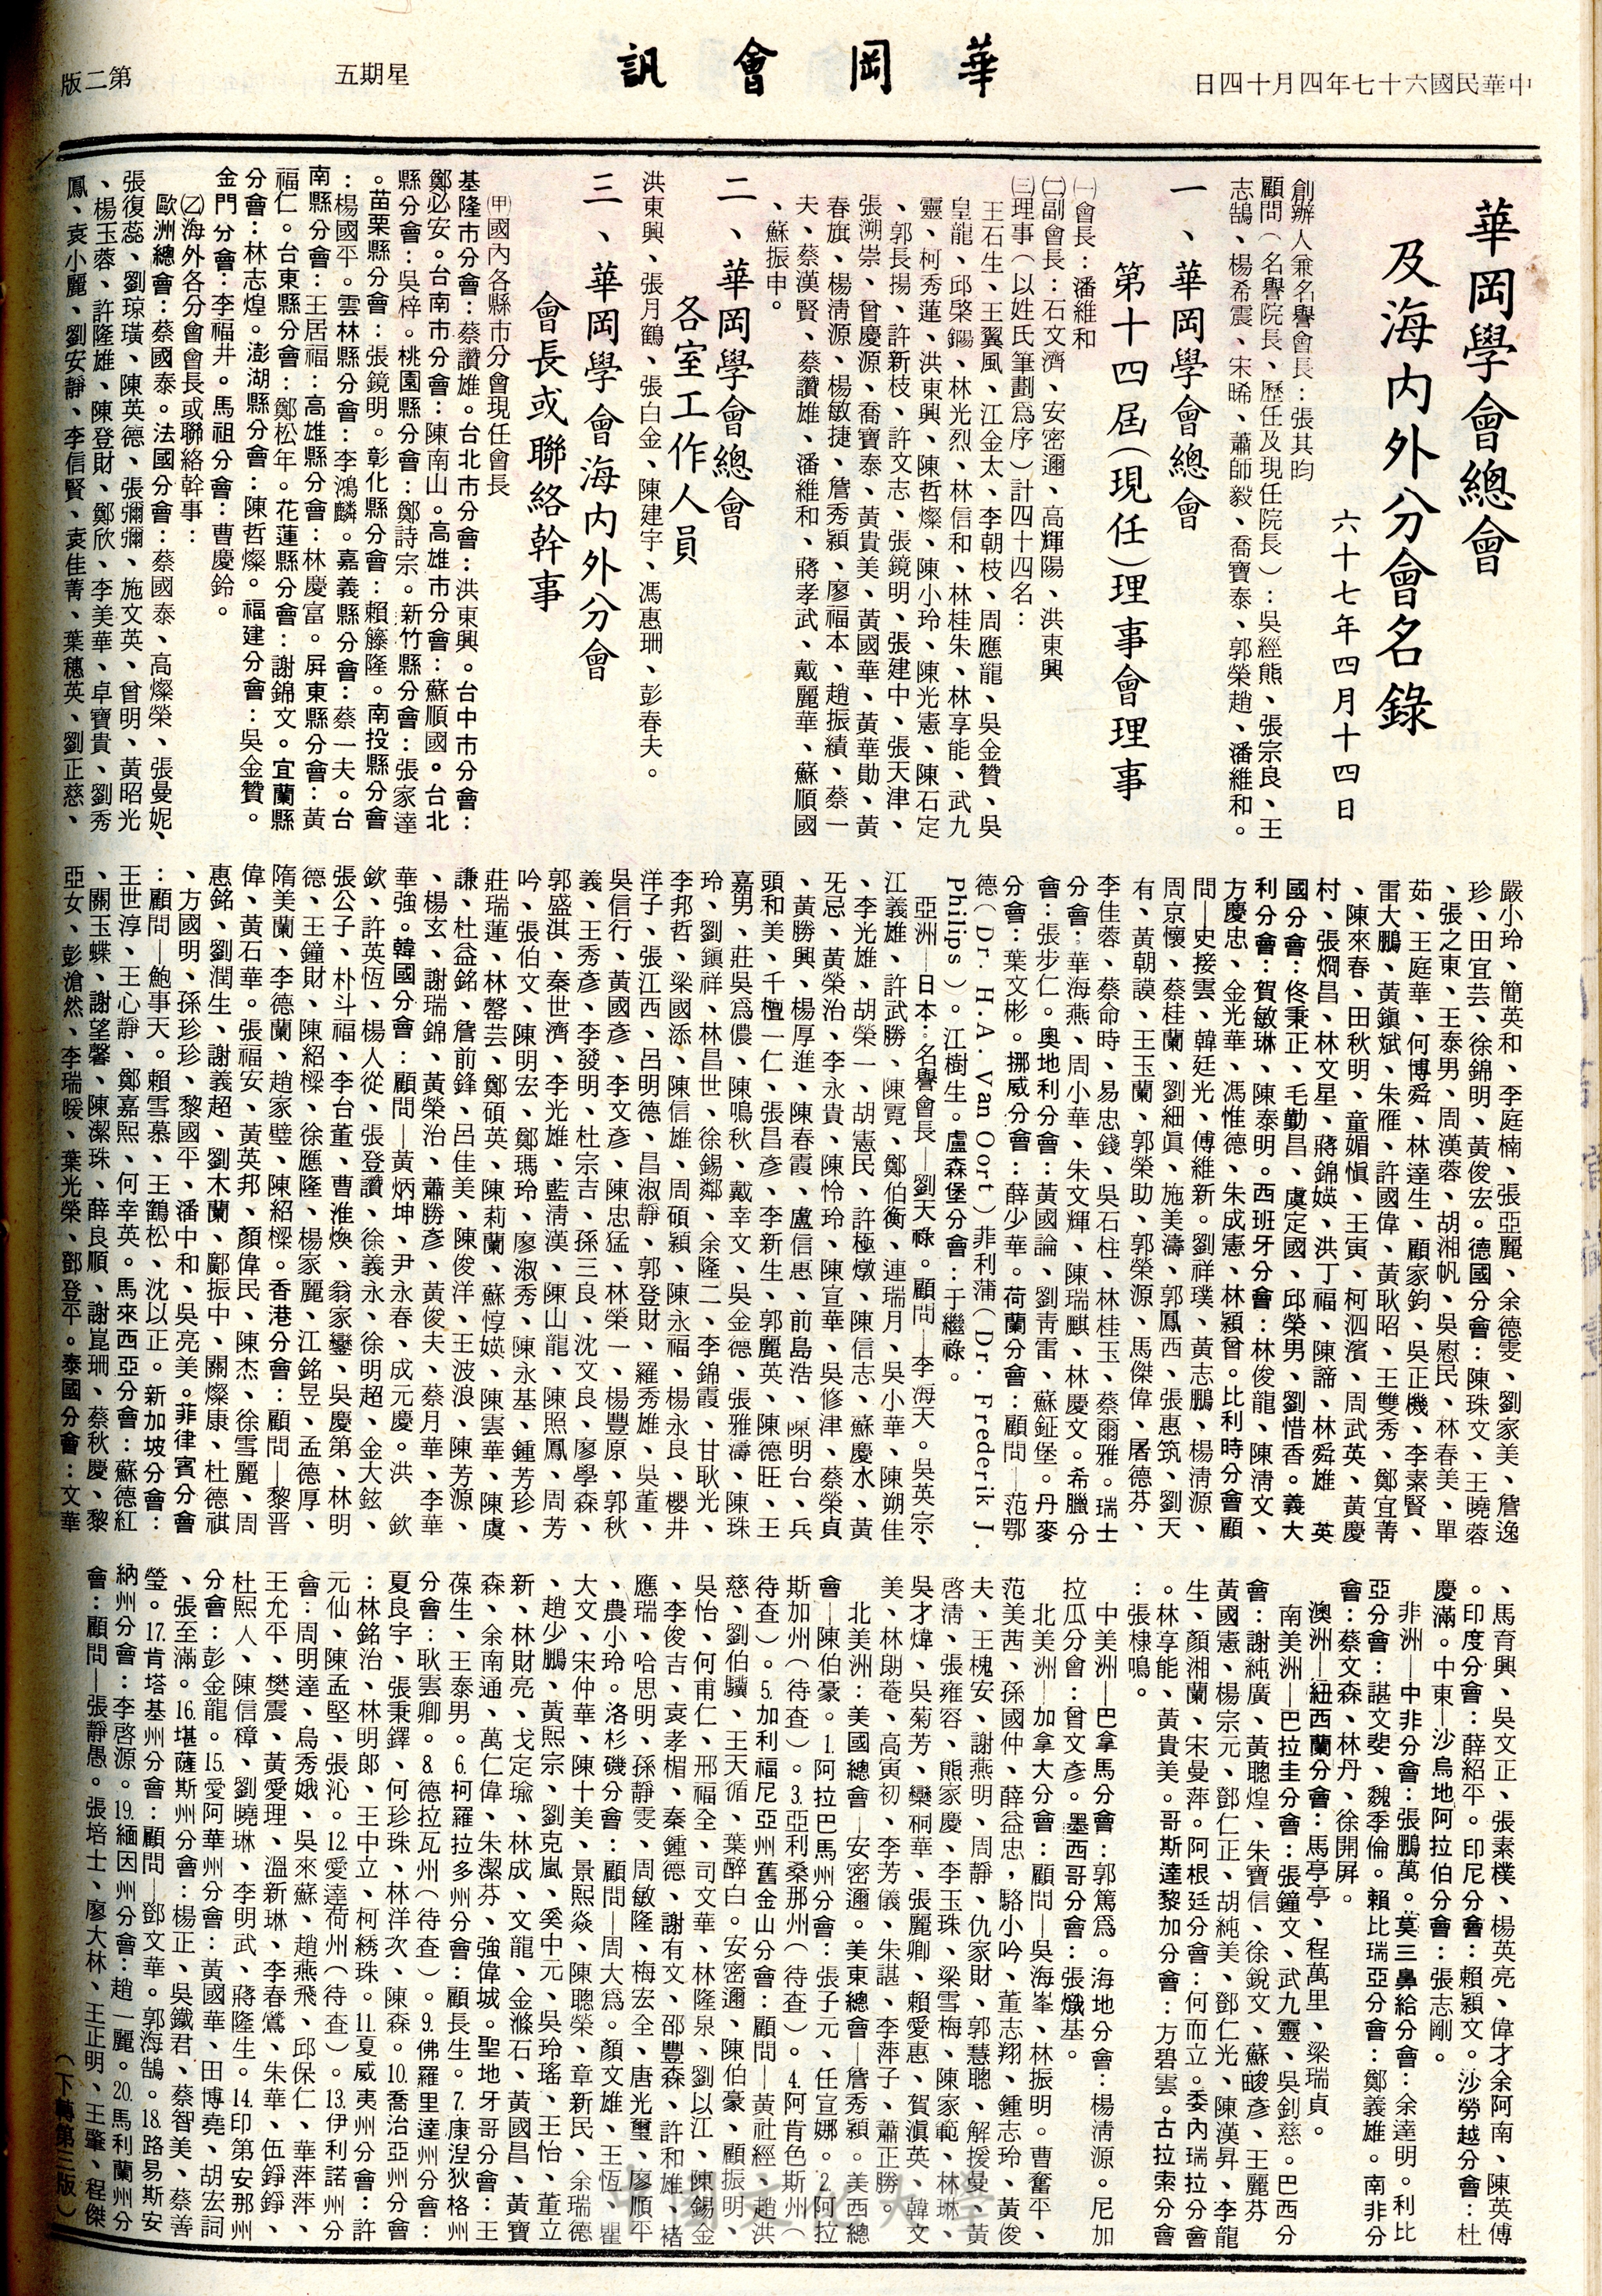 中華民國六十七年四月十四日
華岡會訊
星期五
第二版
華岡學會總會
及海內外分會名錄
六十七年四月十四日
創辦人兼名譽會長：張其昀
顧問（名譽院長、歷任及現任院長）：吳經熊、張宗良、王
志鵠、楊希震、宋晞、蕭師毅、喬寶泰、郭榮趙、潘維和。
一、華岡學會總會
第十四屆（現任）理事會理事
㈠會長：潘維和
㈡副會長：石文濟、安密邇、高輝陽、洪東興
㈢理事（以姓氏筆劃爲序）計四十四名：
王石生、王翼風、江金太、李朝枝、周應龍、吳金贊、吳
皇龍、邱棨鐊、林光烈、林信和、林桂朱、林享能、武九
靈、柯秀蓮、洪東興、陳哲燦、陳小玲、陳光憲、陳石定
、郭長揚、許新枝、許文志、張鏡明、張建中、張天津、
張溯崇、曾慶源、喬寶泰、黃貴美、黃國華、黃華勛、黃
春旗、楊淸源、楊敏捷、詹秀穎、廖福本、趙振績、蔡一
夫、蔡漢賢、蔡讚雄、潘維和、蔣孝武、戴麗華、蘇順國
、蘇振申。
二、華岡學會總會
各室工作人員
洪東興、張月鶴、張白金、陳建宇、馮惠珊、彭春夫。
三、華岡學會海內外分會
會長或聯絡幹事
㈥國內各縣市分會現任會長
基隆市分會：蔡讚雄。台北市分會：洪東興。台中市分會：
鄭必安。台南市分會：陳南山。高雄市分會：蘇順國。台北
縣分會：吳梓。桃園縣分會：鄭詩宗。新竹縣分會：張家達
。苗栗縣分會：張鏡明。彰化縣分會：賴籐隆。南投縣分會
：楊國平。雲林縣分會：李鴻麟。嘉義縣分會：蔡一夫。台
南縣分會：王居福：高雄縣分會：林慶富。屛東縣分會：黃
福仁。台東縣分會：鄭松年。花蓮縣分會：謝錦文。宜蘭縣
分會：林志煌。澎湖縣分會：陳哲燦。福建分會：吳金贊。
金門分會：李福井。馬祖分會：曹慶鈴。
㈡海外各分會會長或聯絡幹事：
歐洲總會：蔡國泰。法國分會：蔡國泰、高燦榮、張曼妮、
張復蕊、劉琼璜、陳英德、張彌彌、施文英、曾明、黃昭光
、楊玉蓉、許隆雄、陳登財、鄭欣、李美華、卓寶貴、劉秀
鳳、袁小麗、劉安靜、李信賢、袁佳菁、葉穗英、劉正慈、
嚴小玲、簡英和、李庭楠、張亞麗、余德雯、劉家美、詹逸
珍、田宜芸、徐錦明、黃俊宏。德國分會：陳珠文、王曉蓉
、張之東、王泰男、周漢蓉、胡湘帆、吳慰民、林春美、單
茹、王庭華、何博舜、林達生、顧家鈞、吳正機、李素賢、
雷大鵬、黃鎭斌、朱雁、許國偉、黃耿昭、王雙秀、鄭宜菁
、陳來春、田秋明、童媚愼、王寅、柯泗濱、周武英、黃慶
村、張烱昌、林文星、蔣錦媖、洪丁福、陳諦、林舜雄　英
國分會：佟秉正、毛勤昌、虞定國、邱榮男、劉惜香。義大
利分會：賀敏琳、陳泰明。西班牙分會：林俊龍、陳淸文、
方慶忠、金光華、馮惟德、朱成憲、林穎曾。比利時分會顧
問—史接雲、韓廷光、傅維新。劉祥璞、黃志鵬、楊淸源、
周京懷、蔡桂蘭、劉細眞、施美濤、郭鳳西、張惠筑、劉天
有、黃朝謨、王玉蘭、郭榮助、郭榮源、馬傑偉、屠德芬、
李佳蓉、蔡命時、易忠錢、吳石柱、林桂玉、蔡爾雅。瑞士
分會：華海燕、周小華、朱文輝、陳瑞麒、林慶文。希臘分
會：張步仁。奧地利分會：黃國論、劉靑雷、蘇鉦堡。丹麥
分會：葉文彬。挪威分會：薛少華。荷蘭分會：顧問—范鄂
德（Dr. H.A. Van Oort）菲利蒲（Dr. Frederik J.
Philips）。江樹生。盧森堡分會：于繼祿。
亞洲—日本：名譽會長—劉天祿。顧問—李海天。吳英宗、
江義雄、許武勝、陳霓、鄭伯衡、連瑞月、吳小華、陳朔佳
、李光雄、胡榮一、胡憲民、許極燉、陳信志、蘇慶水、黃
旡忌、黃榮治、李永貴、陳怜玲、陳宣華、吳修津、蔡榮貞
、黃勝興、楊厚進、陳春霞、盧信惠、前島浩、陳明台、兵
頭和美、千檀一仁、張昌彥、李新生、郭麗英、陳德旺、王
嘉男、莊吳爲儂、陳鳴秋、戴幸文、吳金德、張雅濤、陳珠
玲、劉鎭祥、林昌世、徐錫鄰、余隆二、李錦霞、甘耿光、
李邦哲、梁國添、陳信雄、周碩穎、陳永福、楊永良、櫻井
洋子、張江西、呂明德、昌淑靜、郭登財、羅秀雄、吳董、
吳信行、黃國彥、李文彥、陳忠猛、林榮一、楊豐原、郭秋
義、王秀彥、李發明、杜宗吉、孫三良、沈文良、廖學森、
郭盛淇、秦世濟、李光雄、藍淸漢、陳山龍、陳照鳳、周芳
吟、張伯文、陳明宏、鄭瑪玲、廖淑秀、陳永基、鍾芳珍、
莊瑞蓮、林罄芸、鄭碩英、陳莉蘭、蘇惇媖、陳雲華、陳虞
謙、杜益銘、詹前鋒、呂佳美、陳俊洋、王波浪、陳芳源、
、楊玄、謝瑞錦、黃榮治、蕭勝彥、黃俊夫、蔡月華、李華
華強。韓國分會：顧問—黃炳坤、尹永春、成元慶。洪　欽
欽、許英恆、楊人從、張登讚、徐義永、徐明超、金大鉉、
張公子、朴斗福、李台董、曹淮煥、翁家鑾、吳慶第、林明
德、王鐘財、陳紹樑、徐應隆、楊家麗、江銘昱、孟德厚、
隋美蘭、李德蘭、趙家璧、陳紹樑。香港分會：顧問—黎晋
偉、黃石華。張福安、黃英邦、顏偉民、陳杰、徐雪麗、周
惠銘、劉潤生、謝義超、劉木蘭、鄺振中、關燦康、杜德祺
、方國明、孫珍珍、黎國平、潘中和、吳亮美。菲律賓分會
：顧問—鮑事天。賴雪慕、王鶴松、沈以正。新加坡分會：
王世淳、王心靜、鄭嘉熙、何幸英。馬來西亞分會：蘇德紅
、關玉蝶、謝望馨、陳潔珠、薛良順、謝崑珊、蔡秋慶、黎
亞女、彭滄然、李瑞暖、葉光榮、鄧登平。泰國分會：文華
、馬育興、吳文正、張素樸、楊英亮、偉才余阿南、陳英傅
。印度分會：薛紹平。印尼分會：賴穎文。沙勞越分會：杜
慶滿。中東—沙烏地阿拉伯分會：張志剛。
非洲—中非分會：張鵬萬。莫三鼻給分會：余達明。利比
亞分會：諶文斐、魏季倫。賴比瑞亞分會：鄭義雄。南非分
會：蔡文森、林丹、徐開屛。
澳洲—紐西蘭分會：馬亭亭、程萬里、梁瑞貞。
南美洲—巴拉圭分會：張鐘文、武九靈、吳釗慈。巴西分
會：謝純廣、黃聰煌、朱寶信、徐銳文、蘇峻彥、王麗芬
黃國憲、楊宗元、鄧仁正、胡純美、鄧仁光、陳漢昇、李龍
生、顏湘蘭、宋曼萍。阿根廷分會：何而立。委內瑞拉分會
。林享能、黃貴美。哥斯達黎加分會：方碧雲。古拉索分會
：張棣鳴。
中美洲—巴拿馬分會：郭篤爲。海地分會：楊淸源。尼加
拉瓜分會：曾文彥。墨西哥分會：張熾基。
北美洲—加拿大分會：顧問—吳海峯、林振明。曹奮平、
范美茜、孫國仲、薛益忠，駱小吟、董志翔、鍾志玲、黃俊
夫、王槐安、謝燕明、周靜、仇家財、郭慧聰、解援曼、黃
啓淸、張雍容、熊家慶、李玉珠、梁雪梅、陳家範、林琳、
吳才煒、吳菊芳、欒桐華、張麗卿、賴愛惠、賀滇英、韓文
美、林朗菴、高寅初、李芳儀、朱諶、李萍子、蕭正勝。
北美洲：美國總會—安密邇。美東總會—詹秀穎。美西總
會—陳伯豪。1.阿拉巴馬州分會：張子元、任宣娜。2.阿拉
斯加州（待查）。3.亞利桑那州（待查）。4.阿肯色斯州（
待查）。5.加利福尼亞州舊金山分會：顧問—黃社經、趙洪
慈、劉伯驥、王天循、葉醉白。安密邇、陳伯豪、顧振明、
吳怡、何甫仁、邢福全、司文華、林隆泉、劉以江、陳錫金
、李俊吉、袁孝楣、秦鍾德、謝有文、邵豐森、許和雄、褚
應瑞、哈思明、孫靜雯、周敏隆、梅宏全、唐光璽、廖順平
、農小玲。洛杉磯分會：顧問—周大爲。顏文雄、王恆、瞿
大文、宋仲華、陳十美、景熙焱、陳聰榮、章新民、余瑞德
、趙少鵬、黃熙宗、劉克嵐、奚中元、吳玲瑤、王怡、董立
新、林財亮、戈定瑜、林成、文龍、金滌石、黃國昌、黃寶
森、余南通、萬仁偉、朱潔芬、強偉城。聖地牙哥分會：王
葆生、王泰男。6.柯羅拉多州分會：顧長生。7.康湼狄格州
分會：耿雲卿。8.德拉瓦州（待查）。9.佛羅里達州分會：
夏良宇、張秉鐸、何珍珠、林洋次、陳森。10.喬治亞州分會
：林銘治、林明郎、王中立、柯綉珠。11.夏威夷州分會：許
元仙、陳孟堅、張沁。12.愛達荷州（待查）。13.伊利諾州分
會：周明達、烏秀娥、吳來蘇、趙燕飛、邱保仁、華萍萍、
王允平、樊震、黃愛理、溫新琳、李春鶯、朱華、伍錚錚、
杜熙人、陳信樟、劉曉琳、李明武、蔣隆生。14.印第安那州
分會：彭金龍。15.愛阿華州分會：黃國華、田博堯、胡宏詞
、張至滿。16.堪薩斯州分會：楊正、吳鐵君、蔡智美、蔡善
瑩。17.肯塔基州分會：顧問—鄧文華。郭海鵠。18.路易斯安
納州分會：李啓源。19.緬因州分會：趙一麗。20.馬利蘭州分
會：顧問—張靜愚。張培士、廖大林、王正明、王肇、程傑
（下轉第三版）
中國文化大學